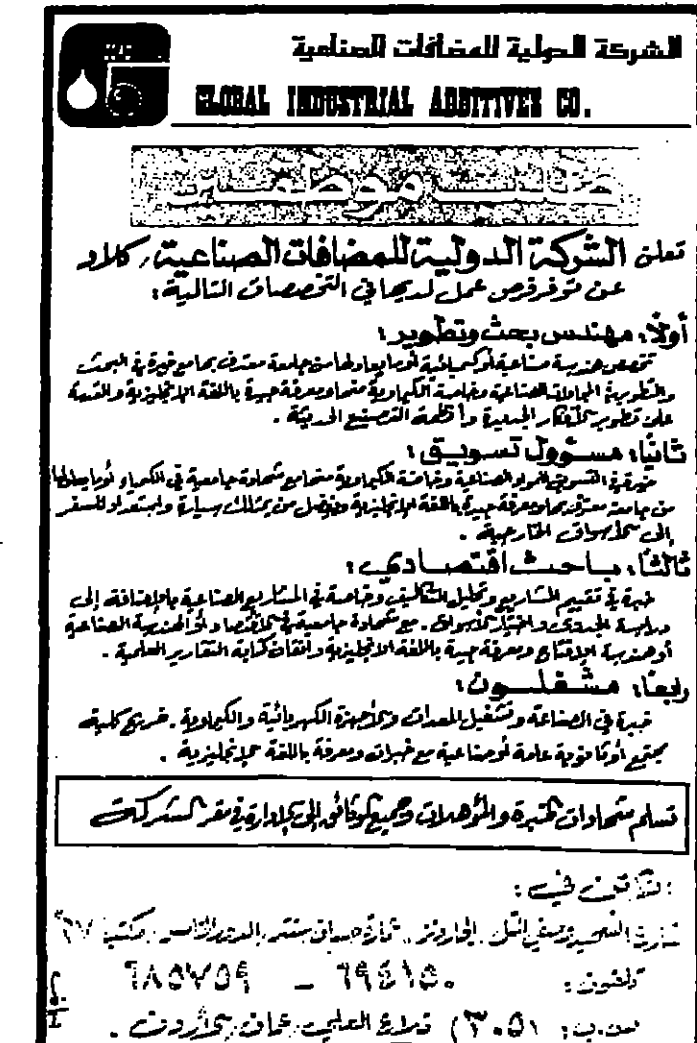 الشركة الدولية للمضافات الصناعية
GLOBAL INDUSTRIAL ADDITIVES CO.
موظفين
تعلن الشركة الدولية للمضافات الصناعية
عن توفر فرص عمل لديها في التخصصات التالية:
أولاً: مهندس بحث وتطوير:
تخصص هندسة صناعية أو كيميائية أو ما يعادلها من جامعة معترف بها مع خبرة في البحث
والتطوير في المجالات الصناعية وخاصة الكيماوية منها ومعرفة جيدة باللغة الإنجليزية والقدرة
على تطوير الأفكار الجديدة وأنظمة التصنيع الحديثة .
ثانياً: مسؤول تسويق:
خبرة في التسويق للمواد الصناعية وخاصة الكيماوية منها مع شهادة جامعية في الكيمياء أو ما يعادلها
من جامعة معترف بها ومعرفة جيدة باللغة الإنجليزية ويفضل من يمتلك سيارة واستعداد للسفر
إلى الأسواق الخارجية .
ثالثاً: باحث اقتصادي:
خبرة في تقييم المشاريع وتحليل التكاليف وخاصة في المشاريع الصناعية بالإضافة إلى
دراسة الجدوى واختيار الأسواق . مع شهادة جامعية في الاقتصاد أو الهندسة الصناعية
أو هندسة الإنتاج ومعرفة جيدة باللغة الإنجليزية وإتقان كتابة التقارير العلمية .
رابعاً: مشغلون:
خبرة في الصناعة وتشغيل المعدات والأجهزة الكهربائية والكيماوية . خريج كلية
مجتمع أو ثانوية عامة أو صناعية مع خبرات ومعرفة باللغة الإنجليزية .
تسلم شهادات الخبرة والمؤهلات وجميع الوثائق إلى الإدارة في مقر الشركة
شارع وصفي التل ، الجاردنز ، عمارة سنتر ، الدور الخامس ، مكتب
تلفون : ٦٩٤١٥٠ - ٦٨٥٧٥٩
ص.ب: (٣٠٥١) تلاع العلي ، عمان ، الأردن .